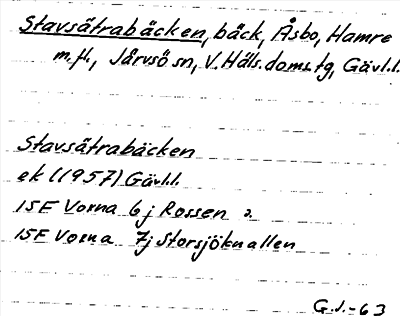 Stavsätrabäcken, bäck, Åsbo, Hamre
m.fl., Järvsö sn, V. Häls. doms.tg, Gävl.l.
Stavsätrabäcken
ek (1957) Gävl.l.
15F Vorna 6j Rossen o.
15F Vorna 7j Storsjöknallen
G.J.-63